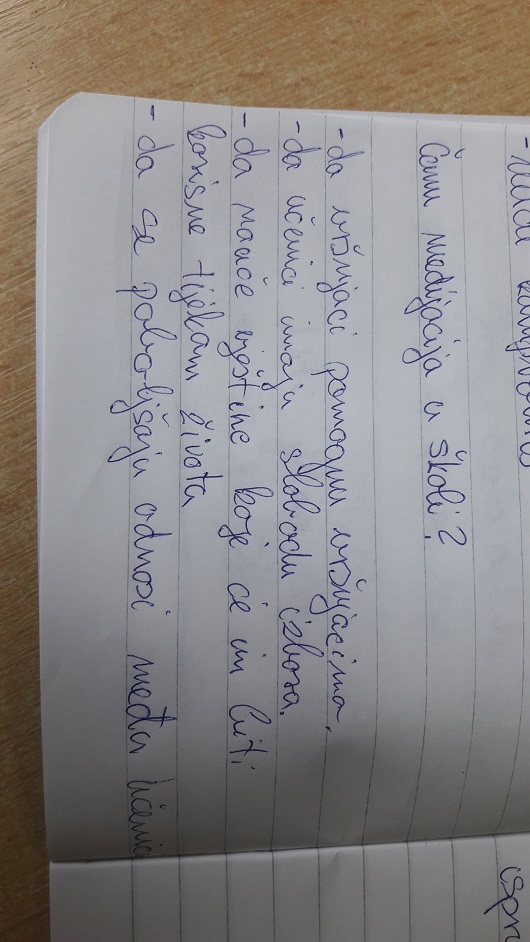 Čemu medijacija u školi?
- da vršnjaci pomognu vršnjacima.
- da učenici imaju slobodu izbora.
- da nauče vještine koje će im biti
korisne tijekom života
- da se poboljšaju odnosi među